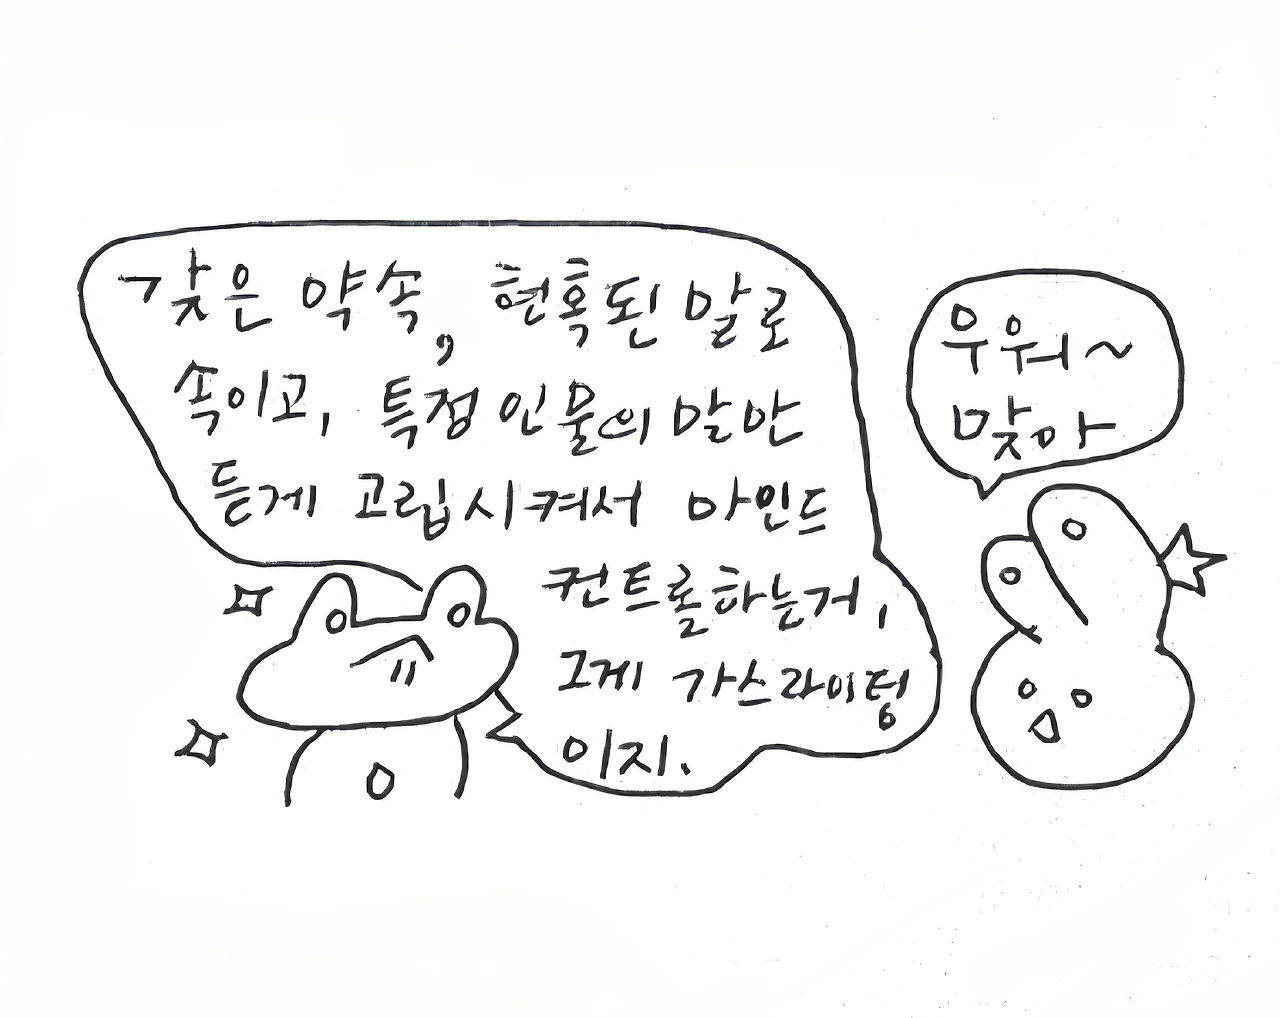 갖은 약속, 현혹된 말로
속이고, 특정인물의 말만
듣게 고립시켜서 마인드
컨트롤하는거,
그게 가스라이팅
이지.
우워~
맞아